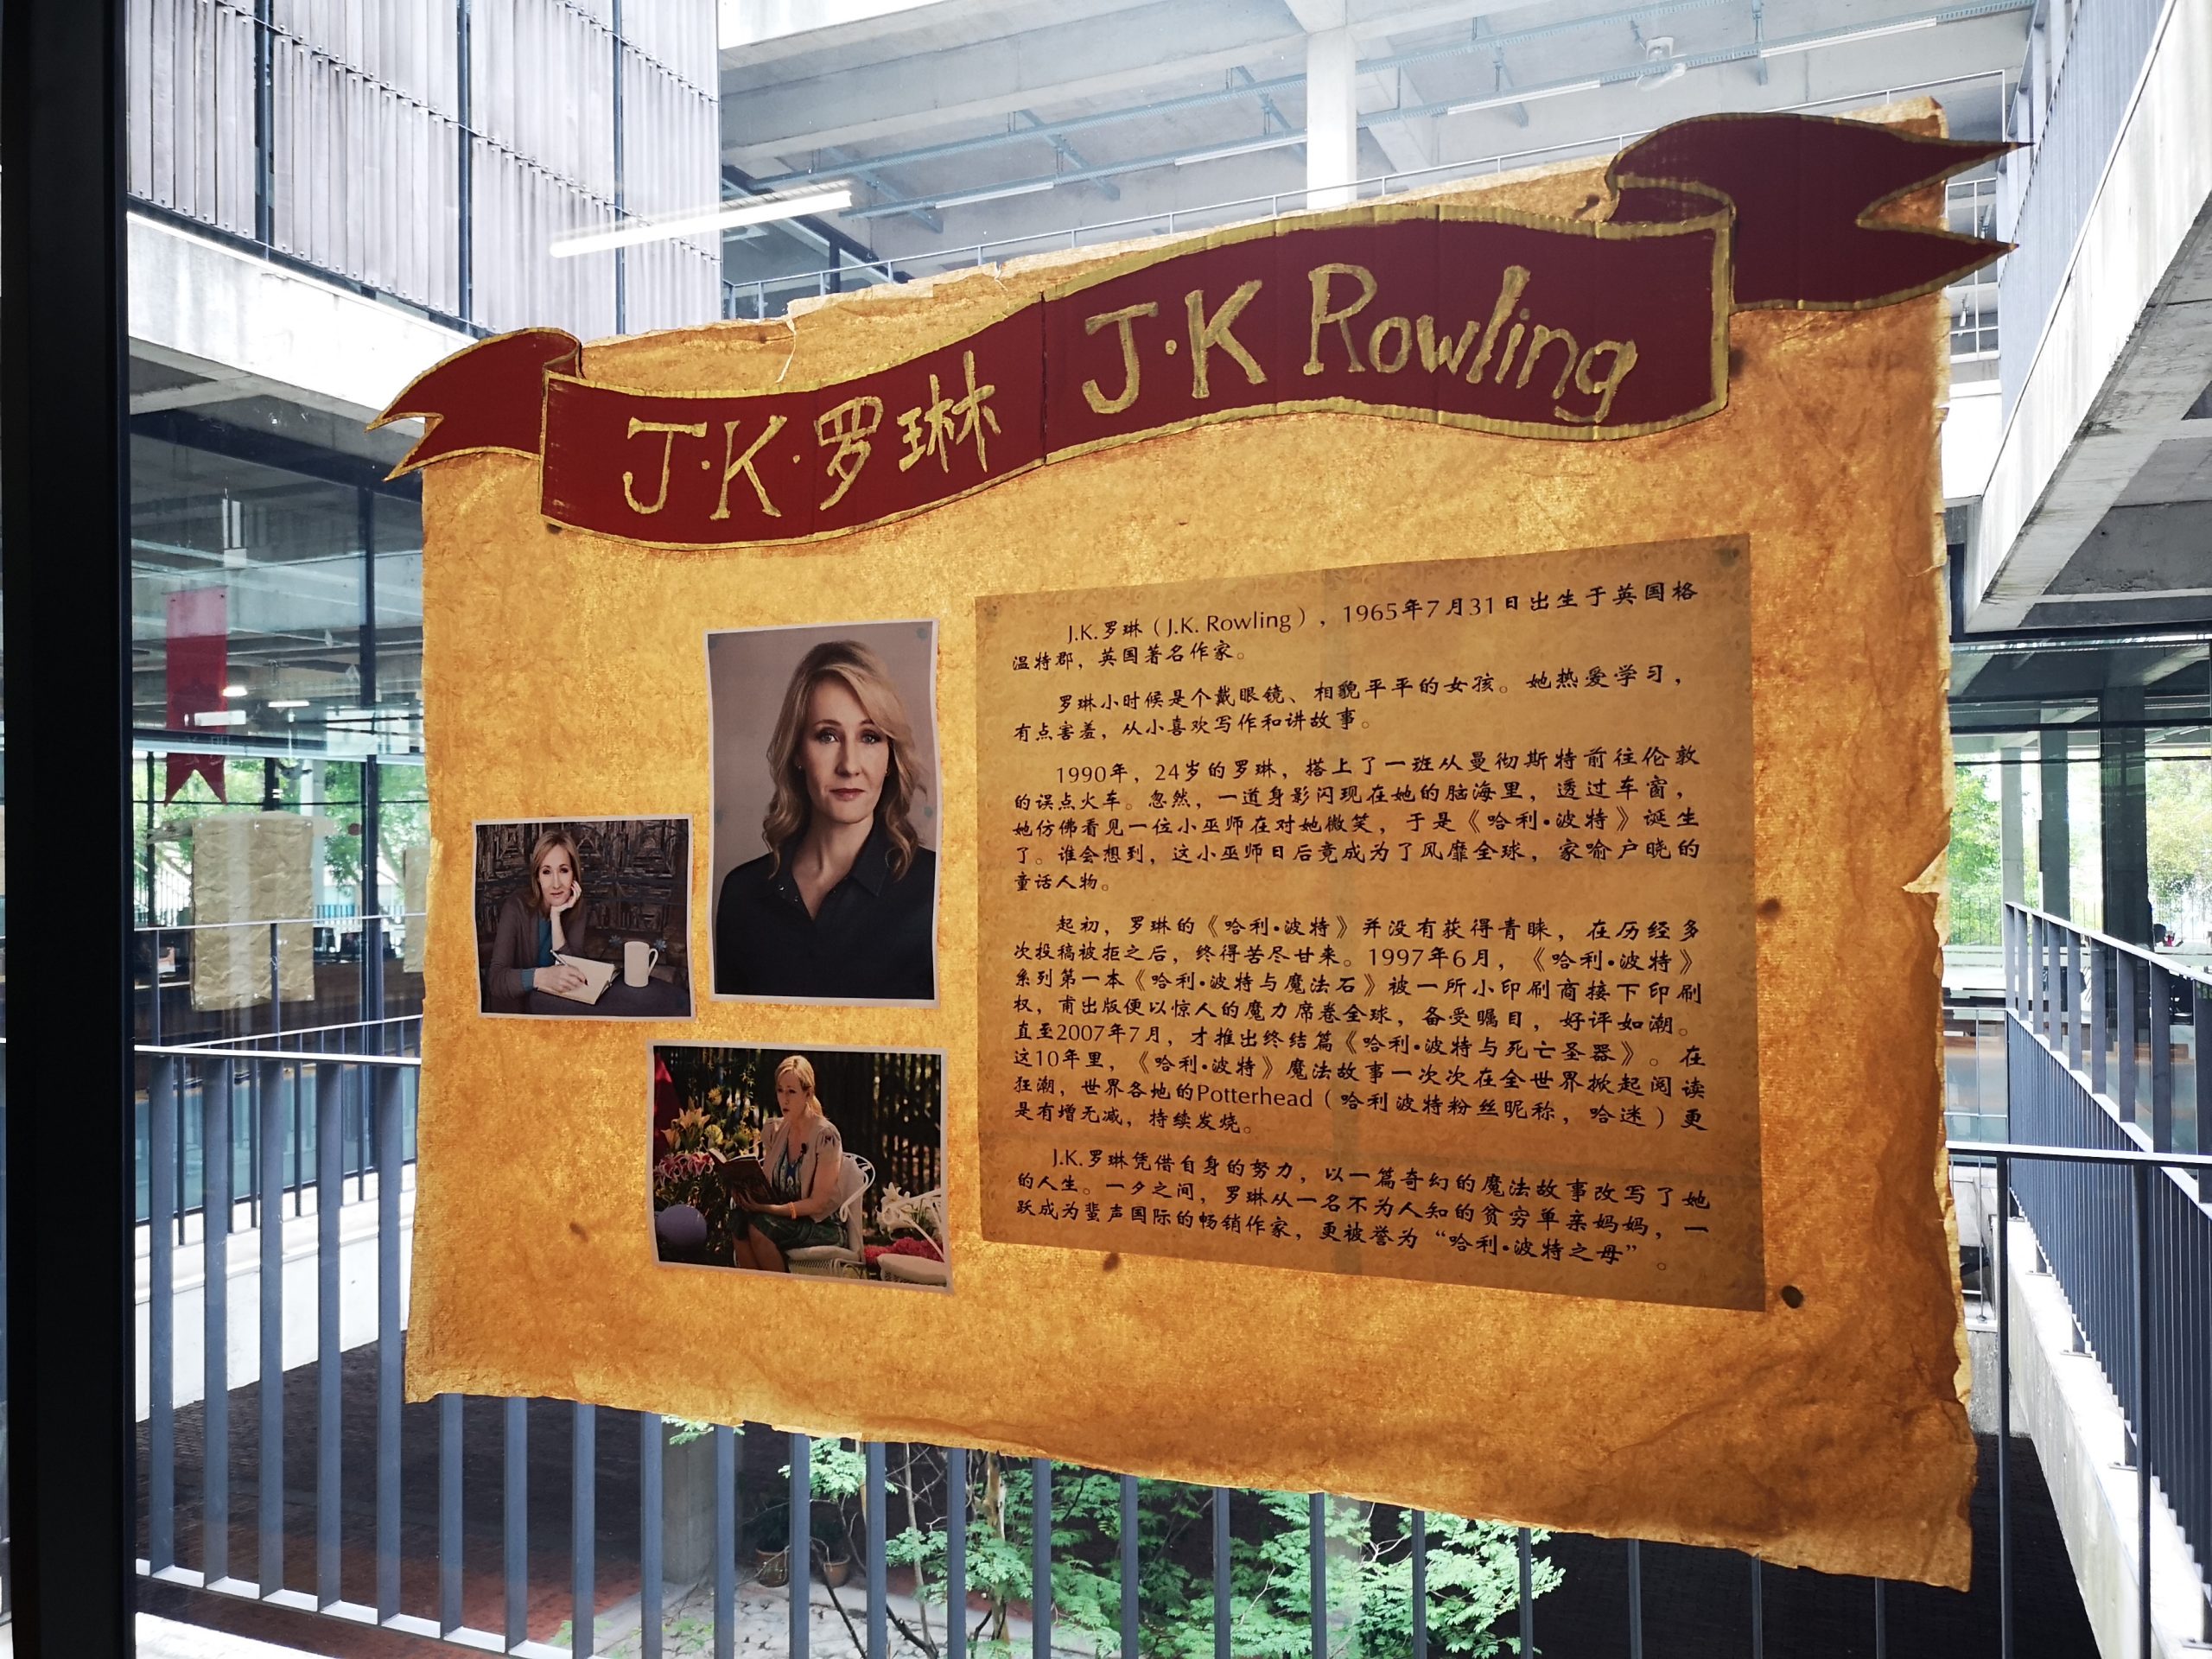 J·K·罗琳 J·K Rowling
J.K.罗琳（J.K. Rowling），1965年7月31日出生于英国格
温特郡，英国著名作家。
罗琳小时候是个戴眼镜、相貌平平的女孩。她热爱学习，
有点害羞，从小喜欢写作和讲故事。
1990年，24岁的罗琳，搭上了一班从曼彻斯特前往伦敦
的误点火车。忽然，一道身影闪现在她的脑海里，透过车窗，
她仿佛看见一位小巫师在对她微笑，于是《哈利•波特》诞生
了。谁会想到，这小巫师日后竟成为了风靡全球，家喻户晓的
童话人物。
起初，罗琳的《哈利•波特》并没有获得青睐，在历经多
次投稿被拒之后，终得苦尽甘来。1997年6月，《哈利•波特》
系列第一本《哈利•波特与魔法石》被一所小印刷商接下印刷
权，甫出版便以惊人的魔力席卷全球，备受瞩目，好评如潮。
直至2007年7月，才推出终结篇《哈利•波特与死亡圣器》。在
这10年里，《哈利•波特》魔法故事一次次在全世界掀起阅读
狂潮，世界各地的Potterhead（哈利波特粉丝昵称，哈迷）更
是有增无减，持续发烧。
J.K.罗琳凭借自身的努力，以一篇奇幻的魔法故事改写了她
的人生。一夕之间，罗琳从一名不为人知的贫穷单亲妈妈，一
跃成为蜚声国际的畅销作家，更被誉为“哈利•波特之母”。